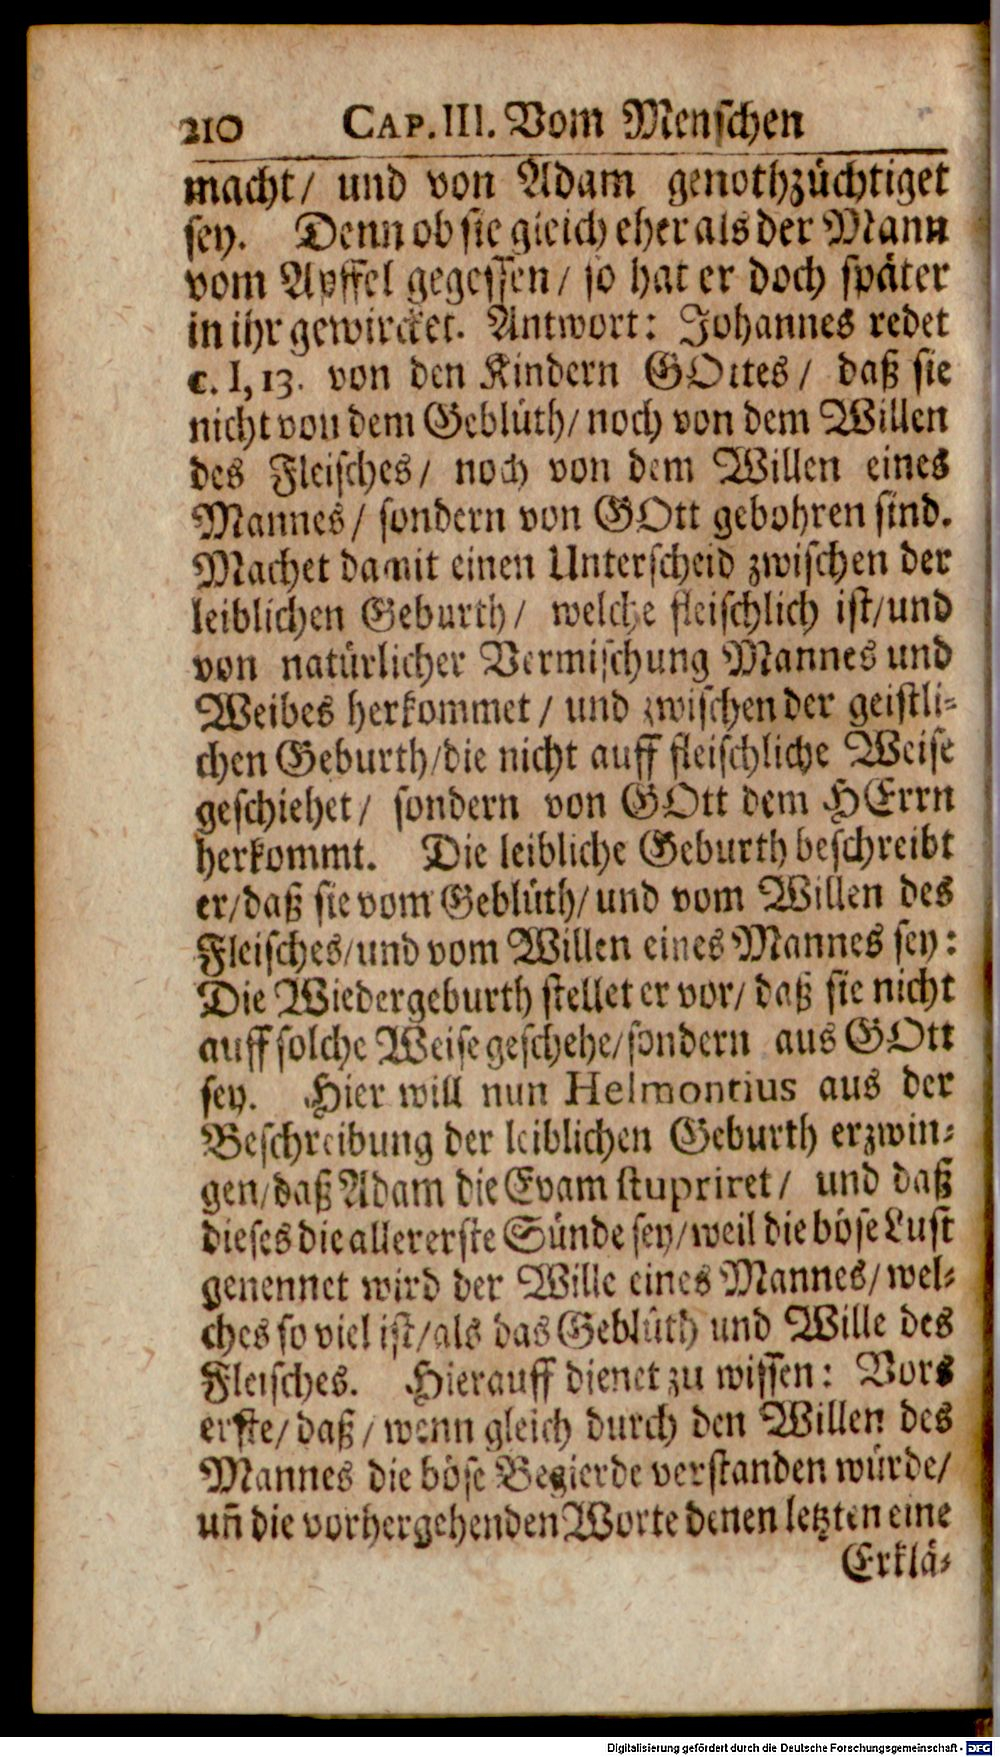 210 CAP. III. Vom Menschen
macht/ und von Adam genothzüchtiget
sey. Denn ob sie gleich eher als der Mann
vom Apffel gegessen/ so hat er doch später
in ihr gewircket. Antwort: Johannes redet
c. I, 13. von den Kindern GOttes/ daß sie
nicht von dem Geblüth/ noch von dem Willen
des Fleisches/ noch von dem Willen eines
Mannes/ sondern von GOtt gebohren sind.
Machet damit einen Unterscheid zwischen der
leiblichen Geburth/ welche fleischlich ist/ und
von natürlicher Vermischung Mannes und
Weibes herkommet/ und zwischen der geistli-
chen Geburth/ die nicht auff fleischliche Weise
geschiehet/ sondern von GOtt dem HErrn
herkommt. Die leibliche Geburth beschreibt
er/ daß sie vom Geblüth/ und vom Willen des
Fleisches/ und vom Willen eines Mannes sey:
Die Wiedergeburth stellet er vor/ daß sie nicht
auff solche Weise geschehe/ sondern aus GOtt
sey. Hier will nun Helmontius aus der
Beschreibung der leiblichen Geburth erzwin-
gen/ daß Adam die Evam stupriret/ und daß
dieses die allererste Sünde sey/ weil die böse Lust
genennet wird der Wille eines Mannes/ wel-
ches so viel ist/ als das Geblüth und Wille des
Fleisches. Hierauff dienet zu wissen: Vors
erste/ daß/ wenn gleich durch den Willen des
Mannes die böse Begierde verstanden würde/
uñ die vorhergehenden Worte denen letzten eine
Erklä-
Digitalisierung gefördert durch die Deutsche Forschungsgemeinschaft - DFG